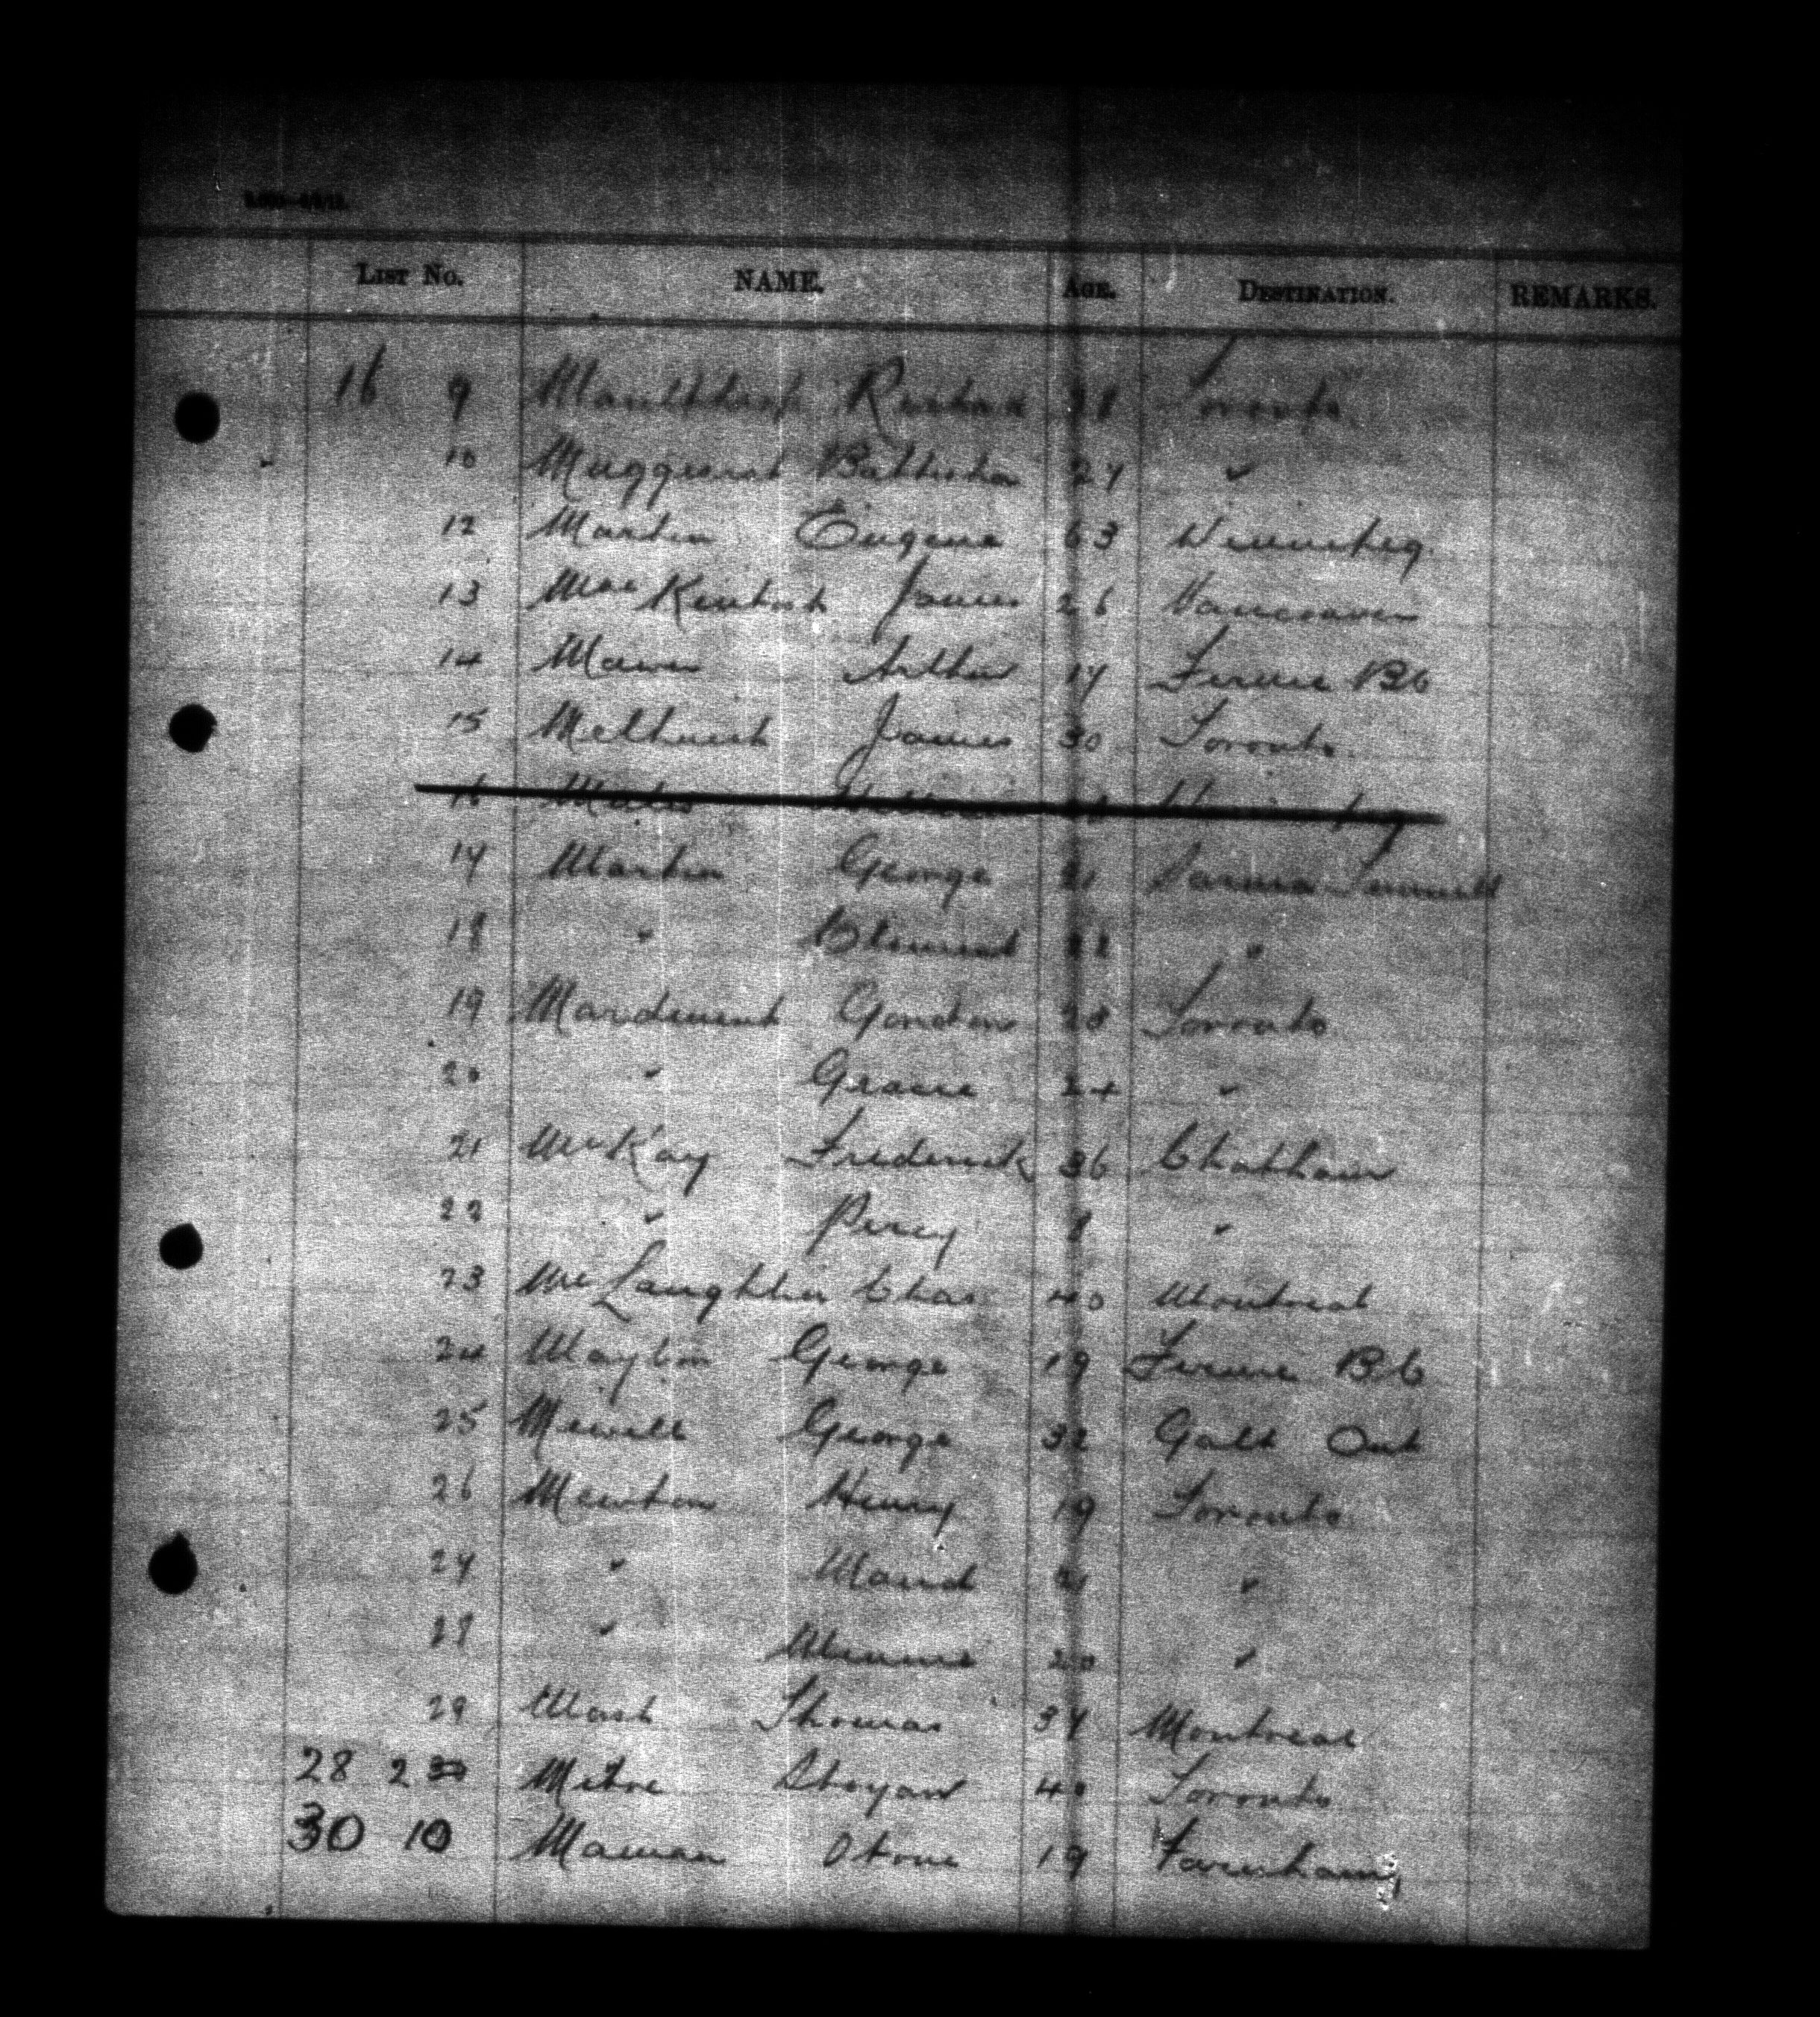 LIST No. NAME. AGE. DESTINATION. REMARKS.
16 9 Toronto
10 Battista 27 "
12 Martin Eugene 63 Winnipeg
13 MacKintosh James 26 Vancouver
14 Mawer Arthur 17 Fernie BC
15 Melhuish James 30 Toronto
16
17 Martin George 21 Sarnia Tunnell
18 " Clement 22 "
19 Mardment Gordon 28 Toronto
20 " Gracie 24 "
21 McKay Frederick 36 Chatham
22 " Percy 8 "
23 McLaughlin Chas 40 Montreal
24 George 19 Fernie BC
25 Mewell George 32 Galt Ont
26 Mewton Henry 19 Toronto
27 " Maud 21 "
28 " Minnie 20 "
29 Mash Thomas 37 Montreal
28 2 Mitre Stoyan 40 Toronto
30 10 19 Farnham